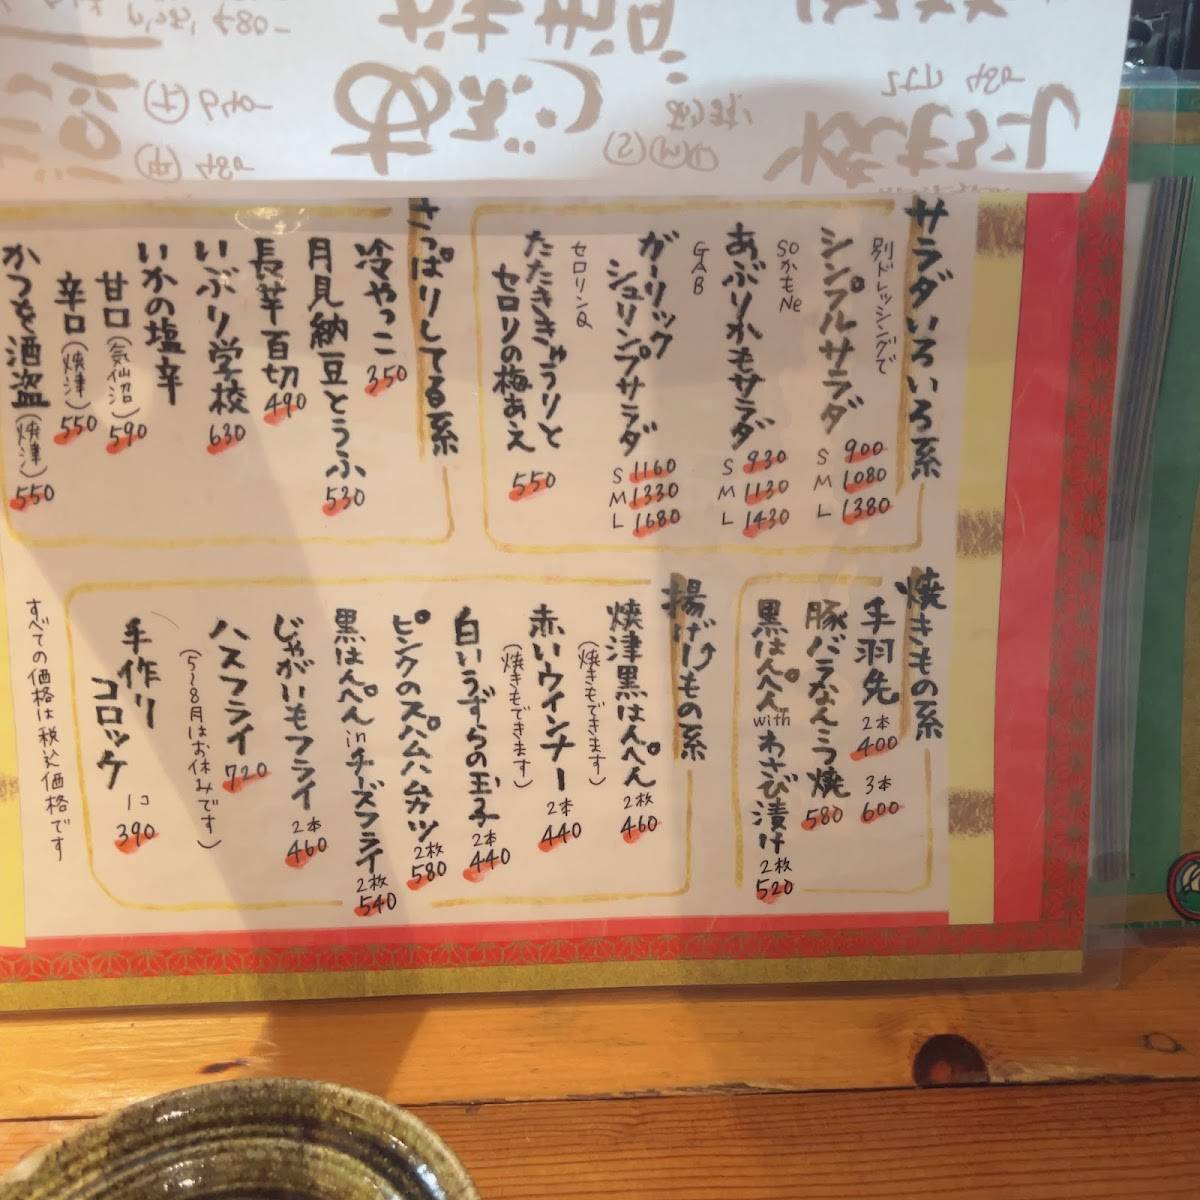 サラダいろいろ系
別ドレッシングで
シンプルサラダ
S 900
M 1080
L 1380
SOかもNe
あぶりかもサラダ
S 930
M 1130
L 1430
GAB
ガーリック
シュリンプサラダ
S 1160
M 1330
L 1680
セロリンQ
たたききゅうりと
セロリの梅あえ
550
さっぱりしてる系
冷やっこ
350
月見納豆とうふ
530
長芋百切
490
いぶり学校
630
いかの塩辛
甘口(気仙沼)
590
辛口(焼津)
550
かつを酒盗(焼津)
550
焼きもの系
手羽先
2本
400
3本
600
豚バラなんこつ焼
580
黒はんぺんwithわさび漬け
2枚
520
揚げもの系
焼津黒はんぺん
(焼きもできます)
2枚
460
赤いウインナー
(焼きもできます)
2本
440
白いうずらの玉子
2本
440
ピンクのスパムハムカツ
2枚
580
黒はんぺんinチーズフライ
2枚
540
じゃがいもフライ
2本
460
ハスフライ
720
(5~8月はお休みです)
手作り
コロッケ
1コ
390
すべての価格は税込価格です